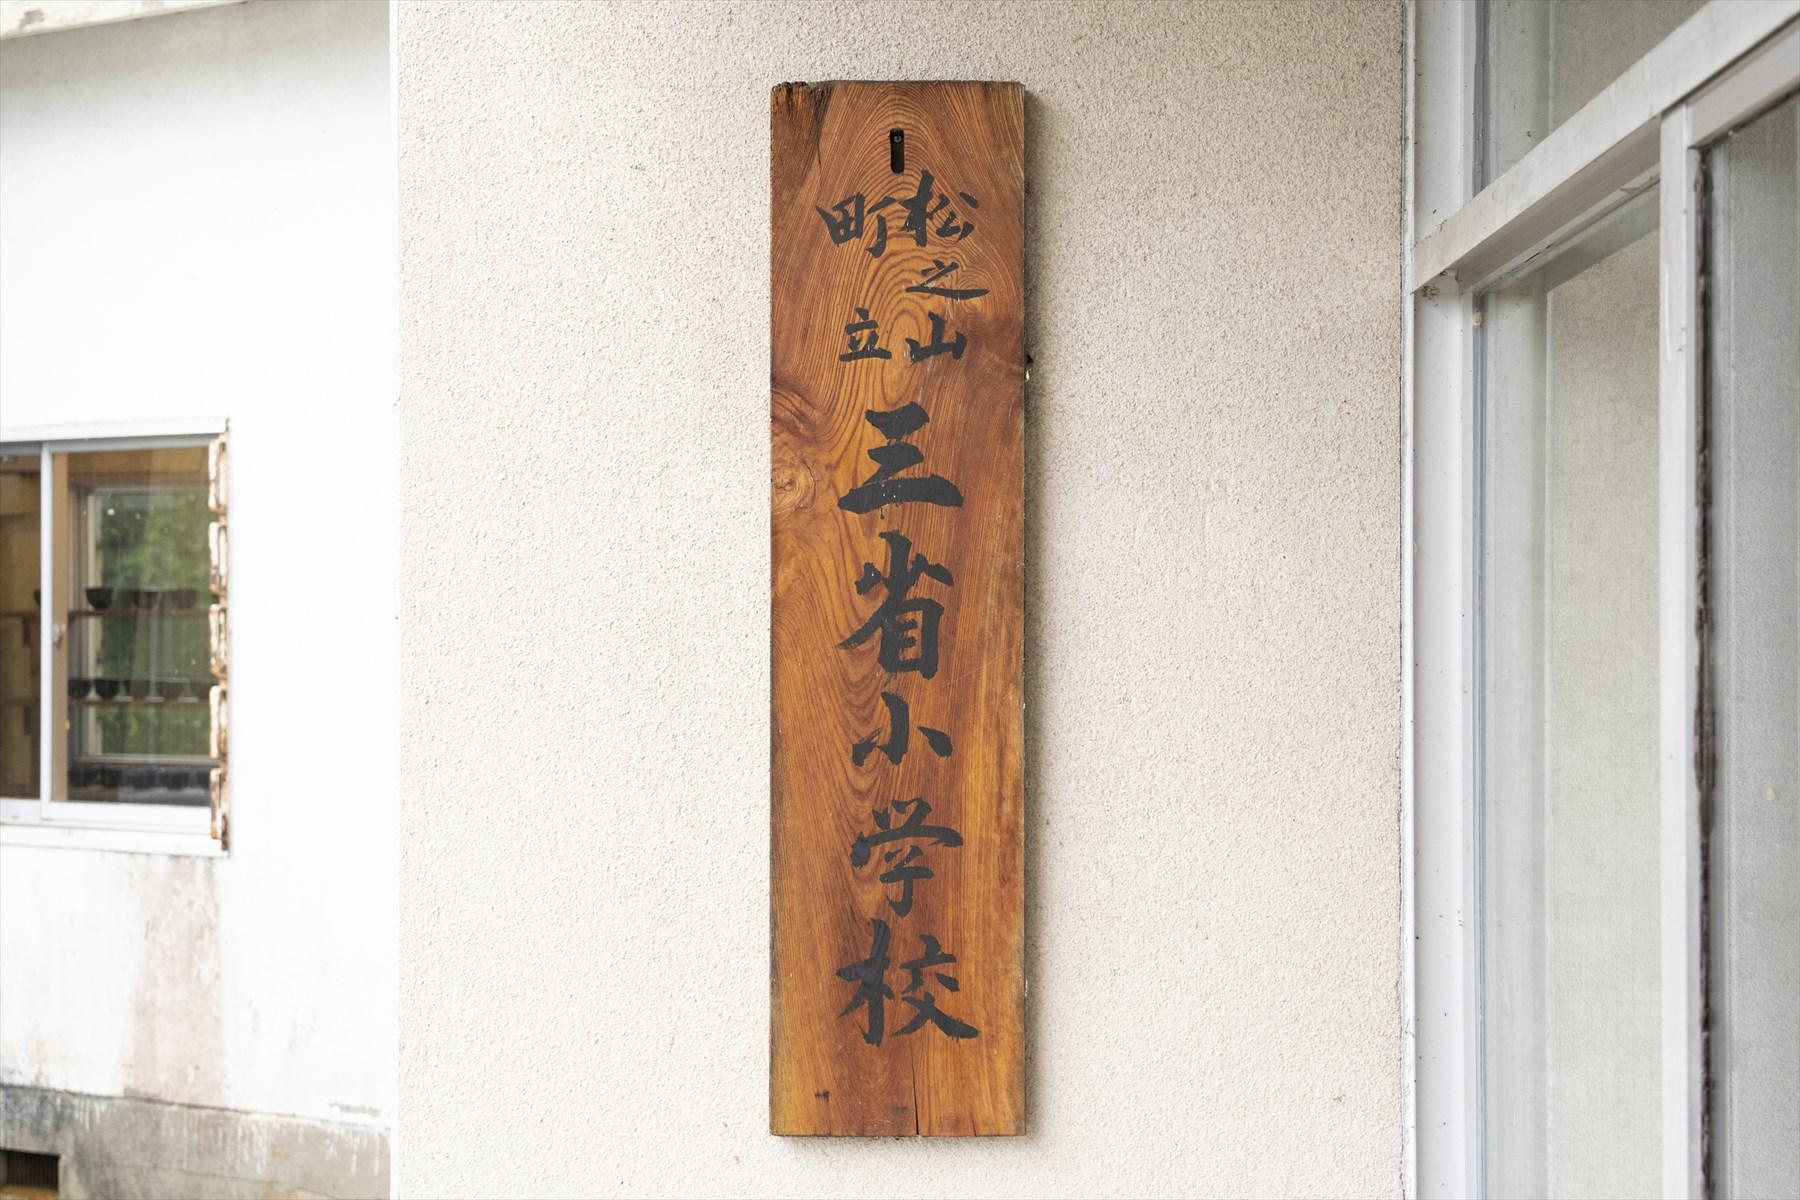 松之山
町立
三省小学校